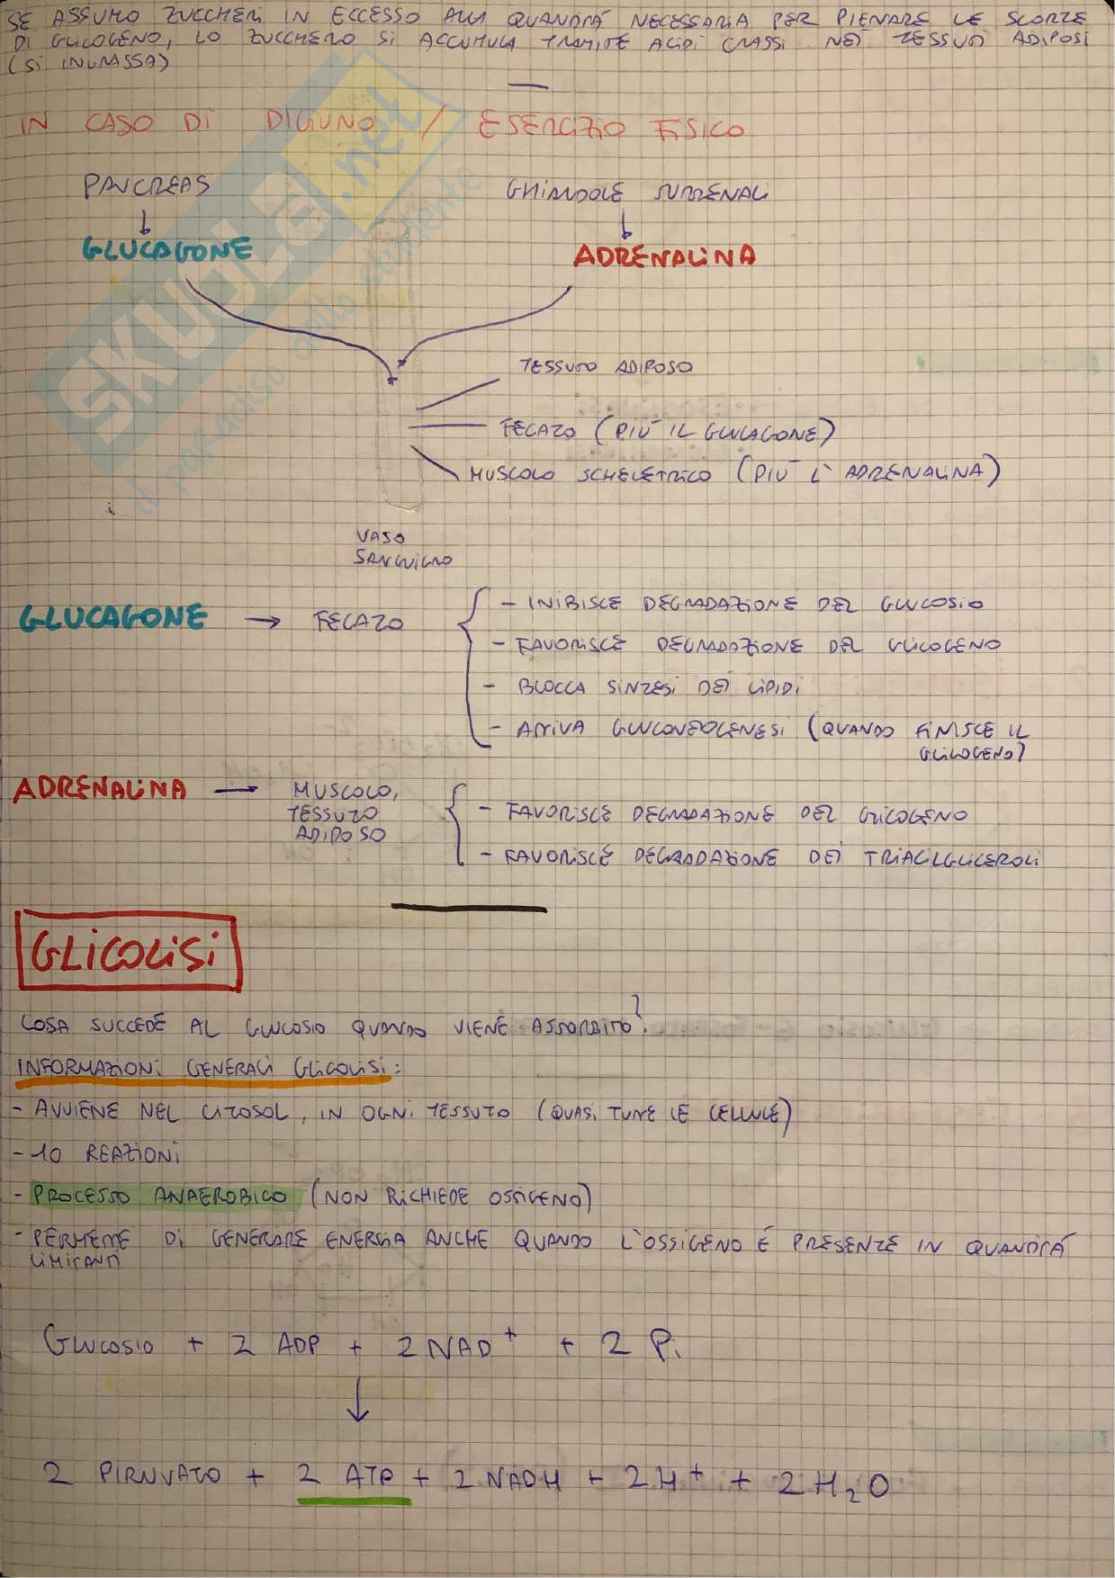 SE ASSUMO ZUCCHERI IN ECCESSO ALLA QUANTITÀ NECESSARIA PER RIEMPIRE LE SCORTE
DI GLICOGENO, LO ZUCCHERO SI ACCUMULA TRAMITE ACIDI GRASSI NEI TESSUTI ADIPOSI
(SI INGRASSA)
IN CASO DI DIGIUNO / ESERCIZIO FISICO
PANCREAS
GHIANDOLE SURRENALI
GLUCAGONE
ADRENALINA
TESSUTO ADIPOSO
FEGATO (PIÙ IL GLUCAGONE)
MUSCOLO SCHELETRICO (PIÙ L'ADRENALINA)
VASO
SANGUIGNO
GLUCAGONE → FEGATO
- INIBISCE DEGRADAZIONE DEL GLUCOSIO
- FAVORISCE DEGRADAZIONE DEL GLICOGENO
- BLOCCA SINTESI DEI LIPIDI
- ATTIVA GLUCONEOGENESI (QUANDO FINISCE IL
GLICOGENO)
ADRENALINA → MUSCOLO,
TESSUTO
ADIPOSO
- FAVORISCE DEGRADAZIONE DEL GLICOGENO
- FAVORISCE DEGRADAZIONE DEI TRIACILGLICEROLI
GLICOLISI
COSA SUCCEDE AL GLUCOSIO QUANDO VIENE ASSORBITO?
INFORMAZIONI GENERALI GLICOLISI:
- AVVIENE NEL CITOSOL, IN OGNI TESSUTO (QUASI TUTTE LE CELLULE)
- 10 REAZIONI
- PROCESSO ANAEROBICO (NON RICHIEDE OSSIGENO)
- PERMETTE DI GENERARE ENERGIA ANCHE QUANDO L'OSSIGENO È PRESENTE IN QUANTITÀ
LIMITANTI
GLUCOSIO + 2 ADP + 2 NAD⁺ + 2 Pi
↓
2 PIRUVATO + 2 ATP + 2 NADH + 2 H⁺ + 2 H₂O
SKUOLA.net
il paradiso dello studente